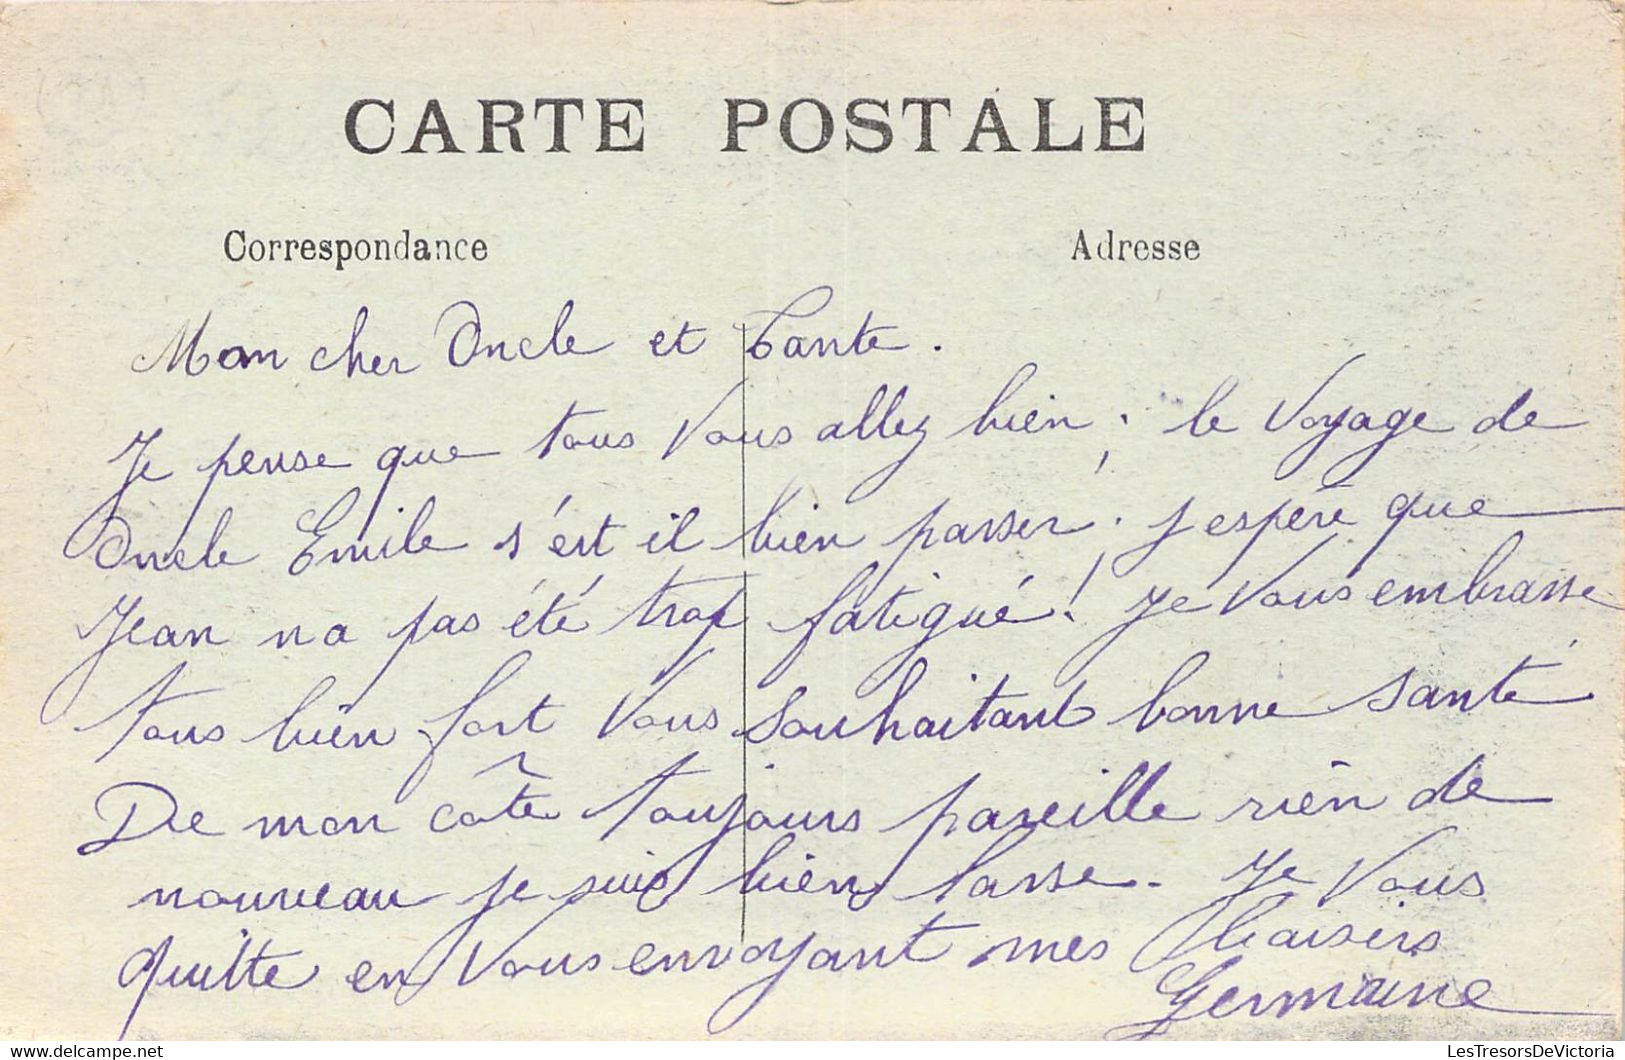 CARTE POSTALE
Correspondance
Adresse
Mon cher Oncle et Tante.
Je pense que tous Vous allez bien ; le Voyage de
Oncle Emile s'est il bien passer ; j'espère que
Jean na pas été trop fatigué ! Je Vous embrasse
tous bien fort Vous souhaitant bonne santé
De mon côte toujours pareille rien de
nouveau je suis bien lasse. Je Vous
quitte en Vous envoyant mes baisers
Germaine
LesTresorsDeVictoria
delcampe.net